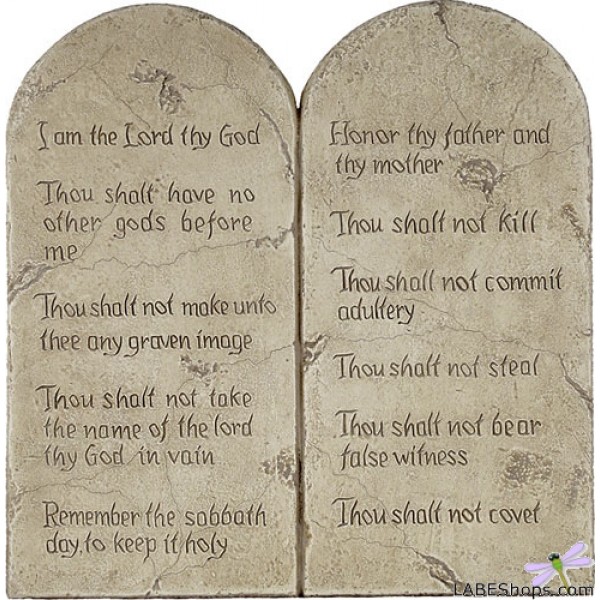 I am the Lord thy God
Thou shalt have no
other gods before
me
Thou shalt not make unto
thee any graven image
Thou shalt not take
the name of the lord
thy God in vain
Remember the sabbath
day, to keep it holy
Honor thy father and
thy mother
Thou shalt not kill
Thou shall not commit
adultery
Thou shalt not steal
Thou shalt not bear
false witness
Thou shalt not covet
LABEShops.com